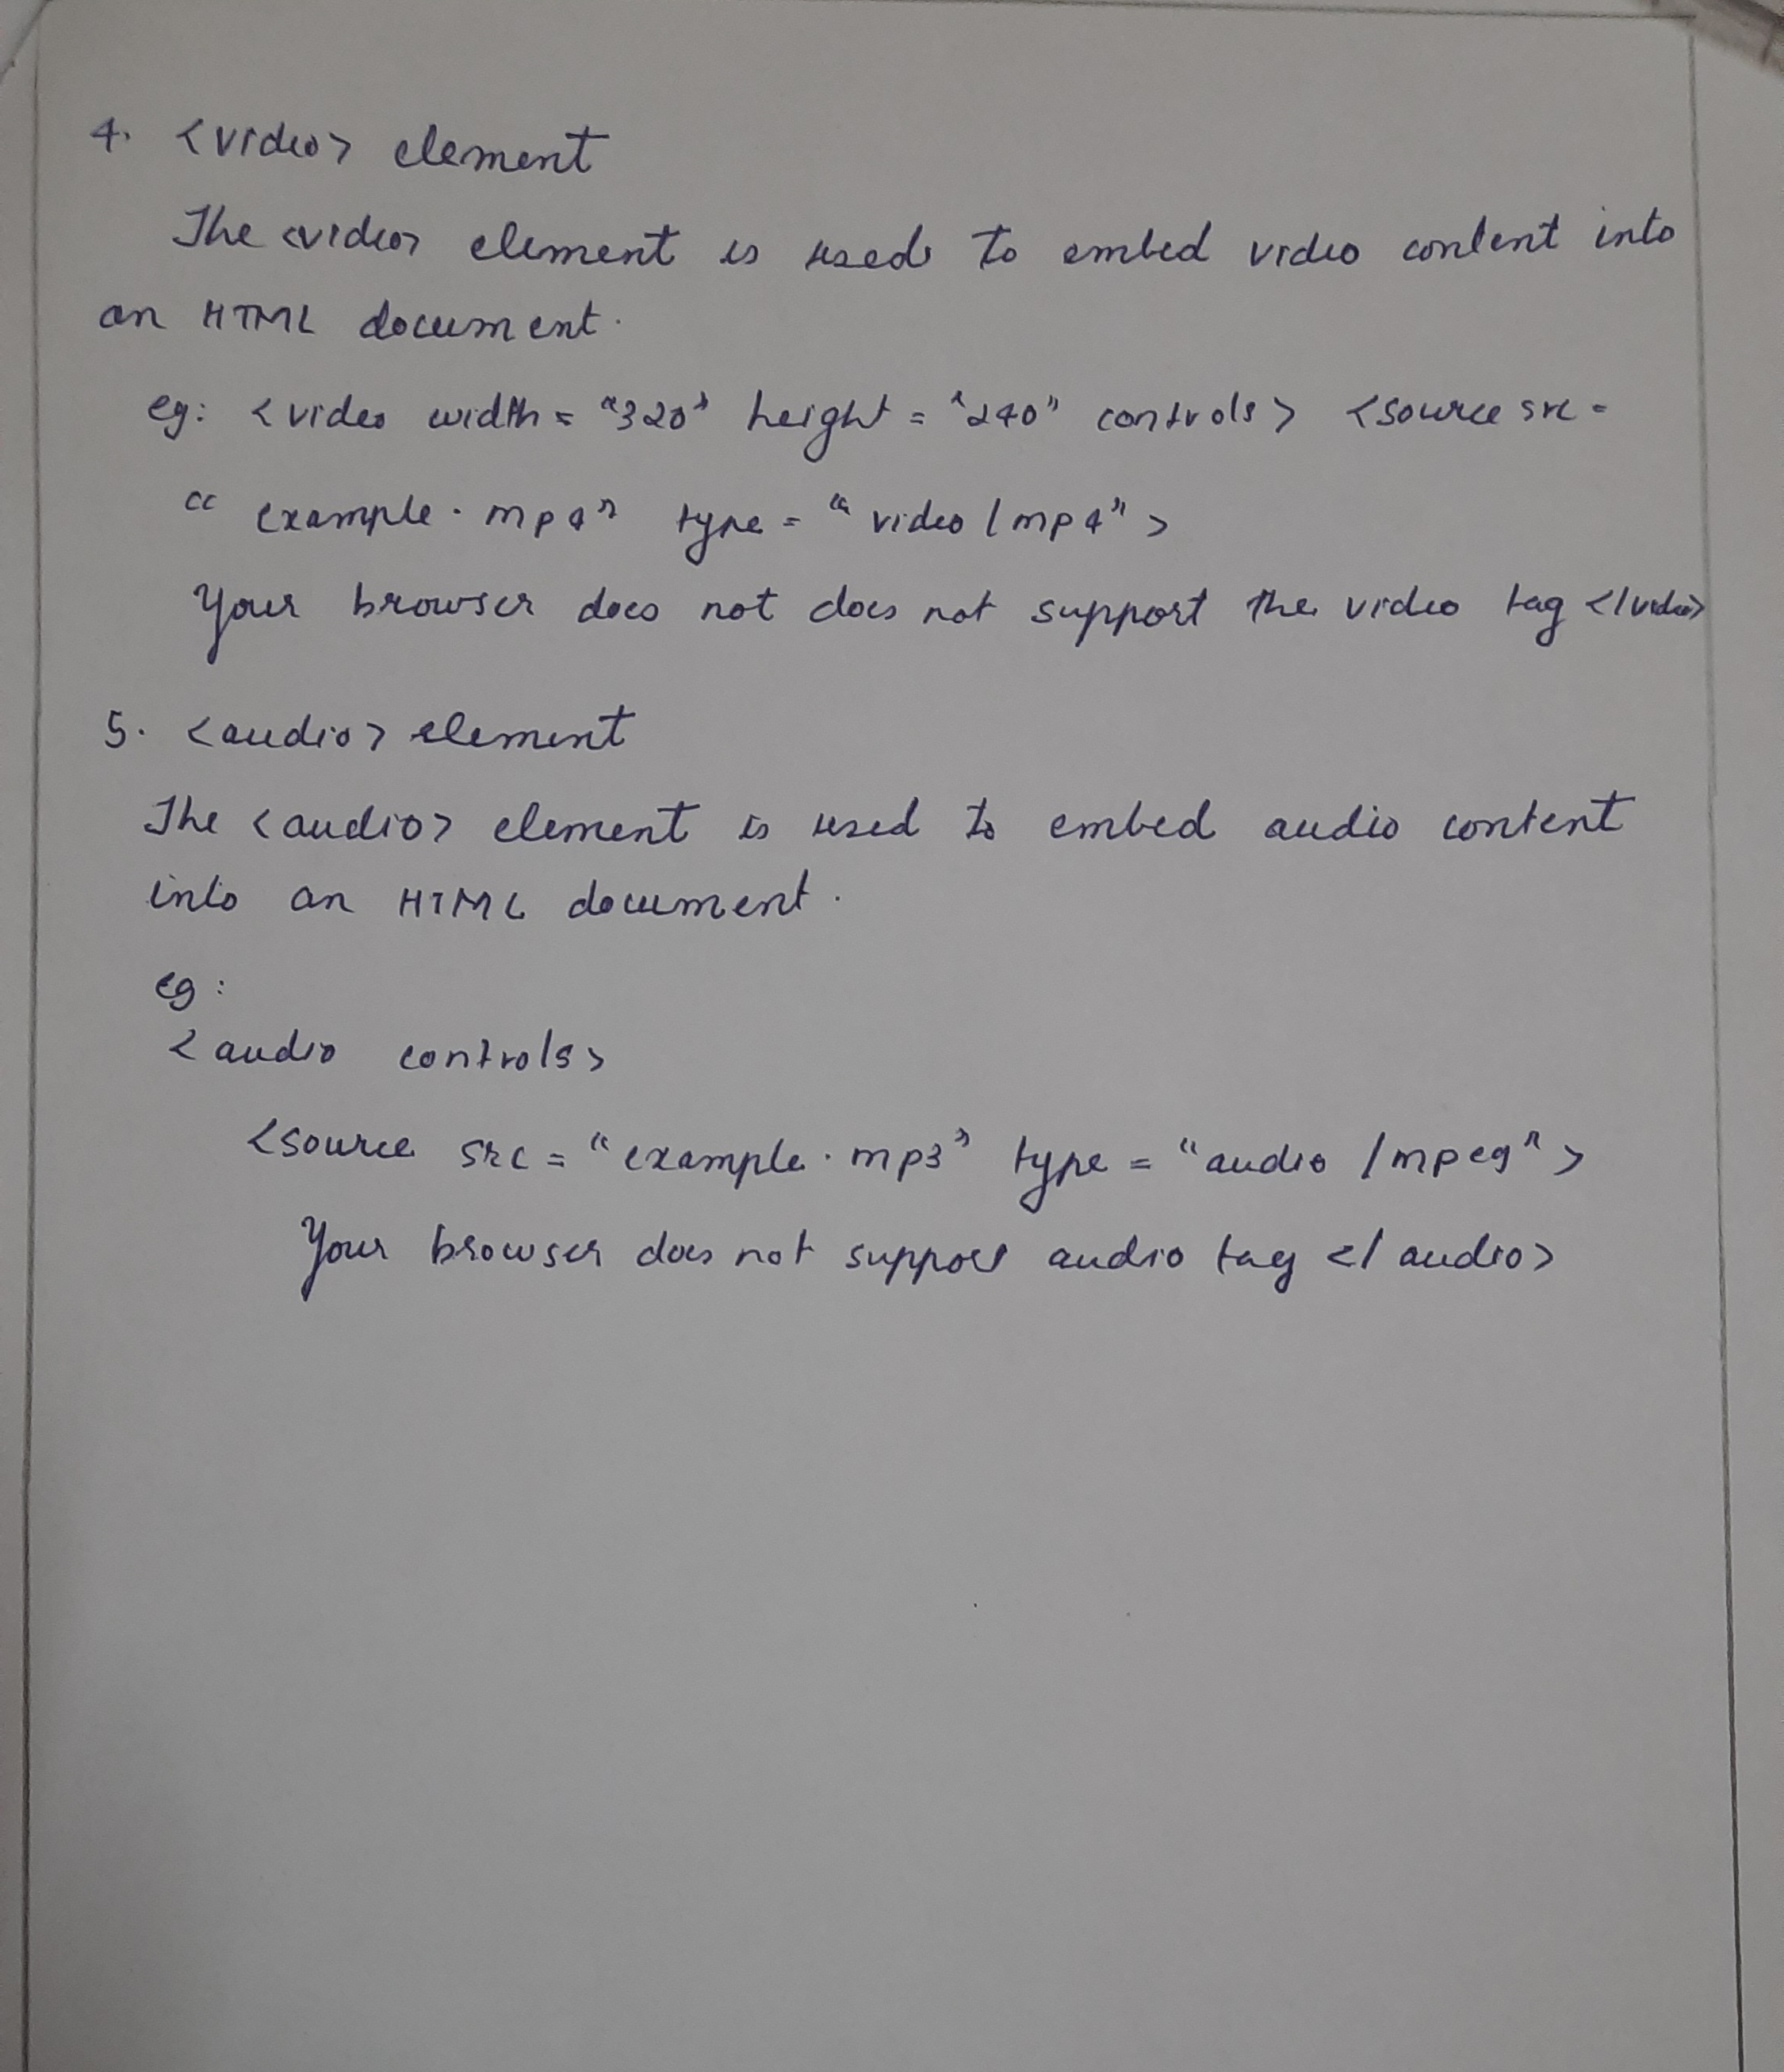 4. <video> element
The <video> element is used to embed video content into
an HTML document.
eg: <video width = "320" height = "240" controls> <source src =
"example.mp4" type = "video/mp4">
Your browser does not does not support the video tag </video>
5. <audio> element
The <audio> element is used to embed audio content
into an HTML document.
eg:
<audio controls>
<source src = "example.mp3" type = "audio/mpeg">
Your browser does not support audio tag </audio>